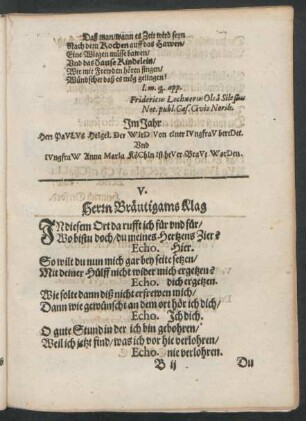 Daß man/wann es Zeit wird seyn
Nach dem Kochen auff das Hawen/
Eine Wiegen müsse bawen/
Und das Hanse Kindelein/
Wir mit Frewden hören singen/
Wündscher daß es mög gelingen!
I. m. q. app.
Fridericus Lochnerus Olsâ Siles
Not. publ. Cæs. Civis Norib.
Im Jahr
Herr PaVLVs Helgel. Der WIrD Von eIner IVngfraV bereDet.
Vnd
IVngfraW Anna MarIa KöChIn Ist heVer BraVt WorDen.
V.
Herrn Bräutigams Klag
IN diesem Ort da rufft ich für und für/
Wo bistu doch/du meines Hertzens Zier?
Echo. Hier.
So wilt du nun mich gar bey seit setzen/
Mit deiner Hülff nicht wider mich ergetzen?
Echo. dich ergetzen.
Wie solte dann diß nicht erfrewen mich/
Dann wie gewünscht an dem ort hör ich dich/
Echo. Ich dich.
O gute Stund in der ich bin gebohren/
Weil ich jetzt find/was ich vor hie verlohren/
Echo. nie verlohren.
B ij Du